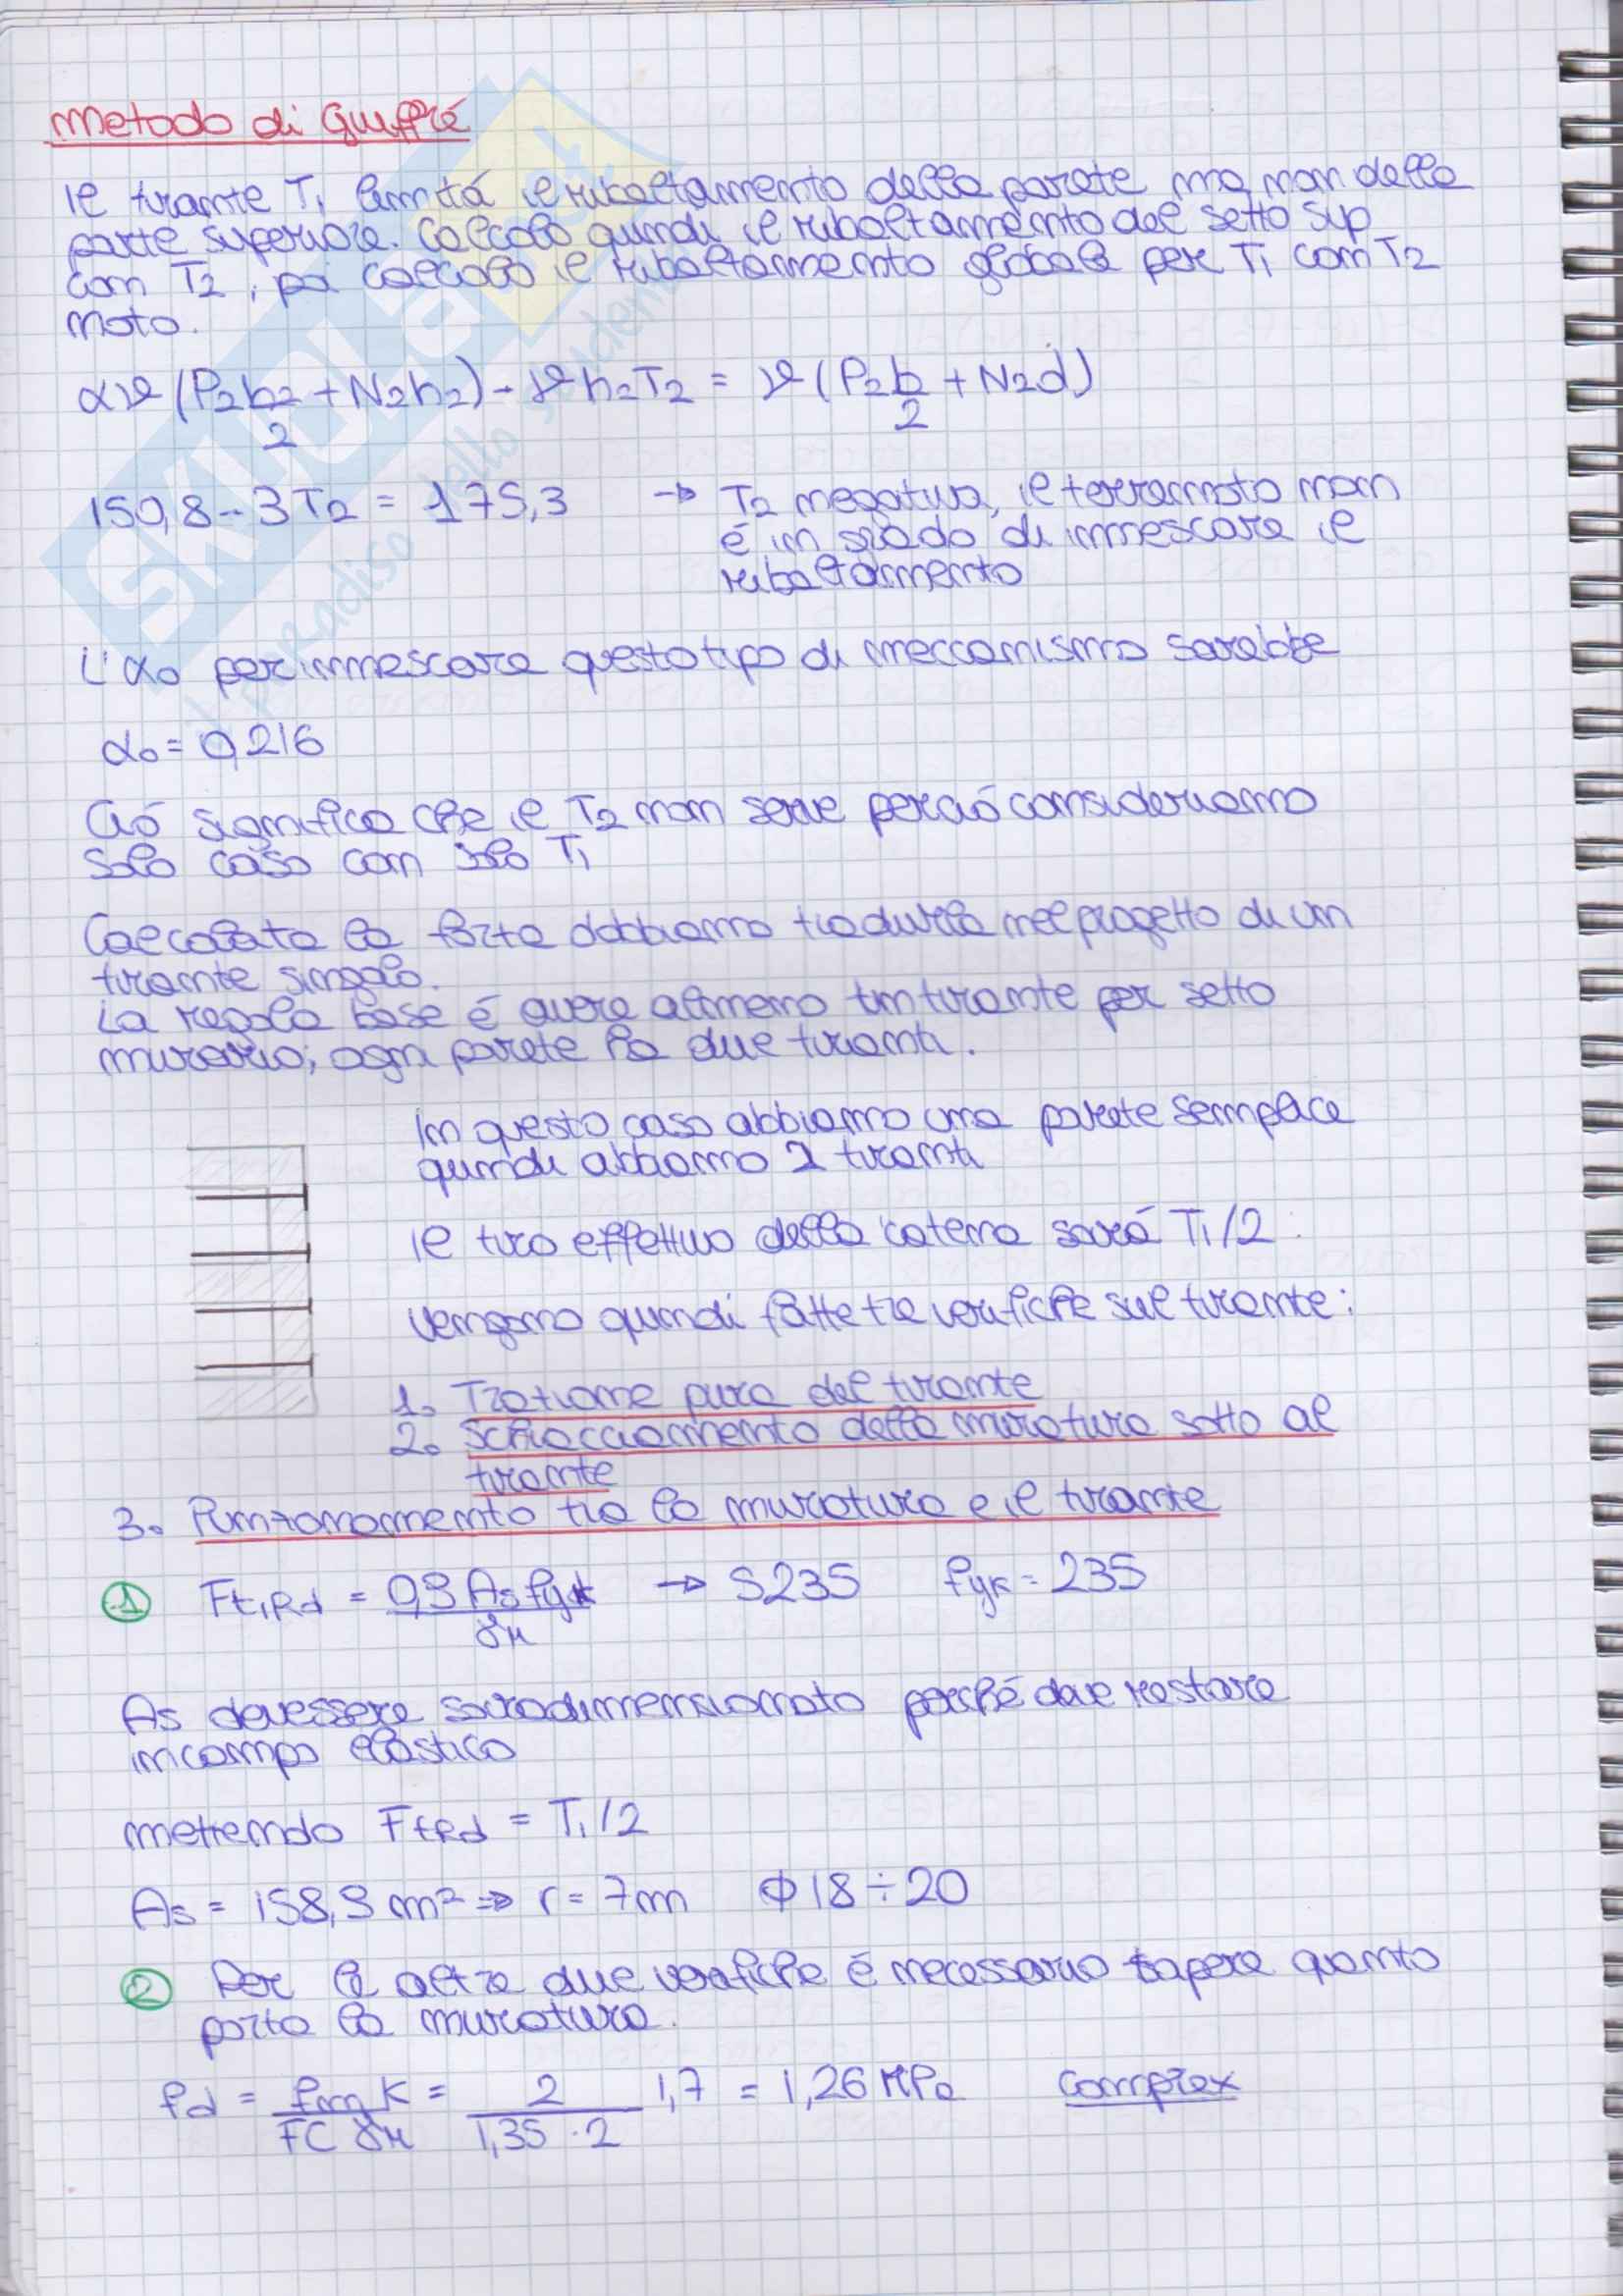 Metodo di Giuffré
Il tirante T₁ limita il ribaltamento della parete ma non della
parte superiore. Calcolo quindi il ribaltamento del setto sup
con T₂, poi calcolo il ribaltamento globale per T₁ con T₂
noto.
αϑ (P₂h₂/2 + N₂h₂) - ϑh₂T₂ = ϑ (P₂b/2 + N₂d)
150,8 - 3T₂ = 175,3 → T₂ negativa, il terremoto non
è in grado di innescare il
ribaltamento
L'α₀ per innescare questo tipo di meccanismo sarebbe
α₀ = 0,216
Ció significa che il T₂ non serve perció consideriamo
solo caso con solo T₁
Calcolata la forza dobbiamo tradurla nel progetto di un
tirante singolo.
La regola base é avere almeno un tirante per setto
murario; ogni parete ha due tiranti.
In questo caso abbiamo una parete semplice
quindi abbiamo 2 tiranti
Il tiro effettivo della catena sará T₁/2.
Vengono quindi fatte tre verifiche sul tirante:
1. Trazione pura del tirante
2. Schiacciamento della muratura sotto al
tirante
3. Punzonamento tra la muratura e il tirante
① Ft,Rd = 0,9 As fyk / γM → S235 fyk = 235
As dev'essere sovradimensionato perché deve restare
in campo elastico
mettendo Ft,Rd = T₁/2
As = 158,9 m² ⇒ r = 7m Φ18÷20
② Per le altre due verifiche é necessario sapere quanto
porta la muratura.
fd = fm K / FC γM = 2 / 1,35 · 2 1,7 = 1,26 MPa
SKUOLA.net
il paradiso dello studente